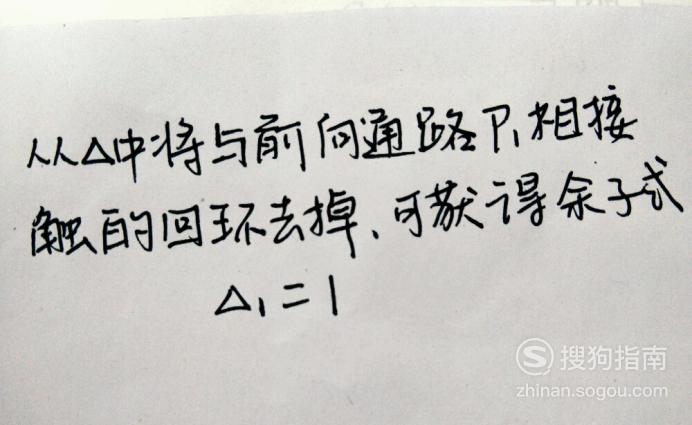 从△中将与前向通路P₁相接
触的回环去掉、可获得余子式
△₁=1
搜狗指南
zhinan.sogou.com